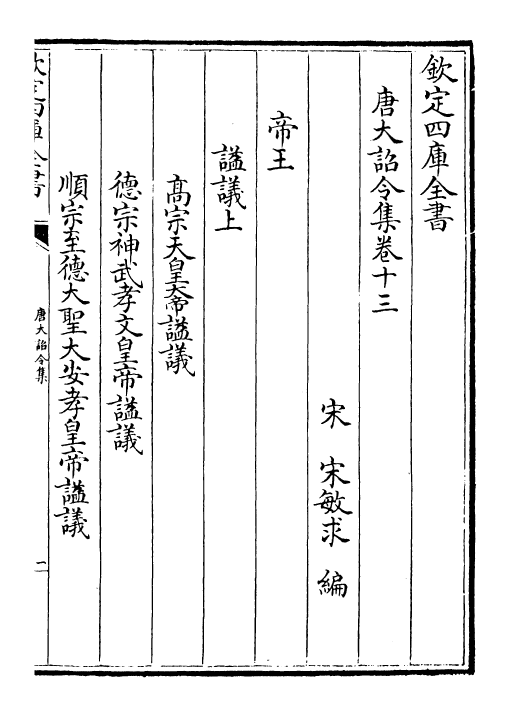 欽定四庫全書
唐大詔令集卷十三
宋 宋敏求 編
帝王
謚議上
高宗天皇大帝謚議
德宗神武孝文皇帝謚議
順宗至德大聖大安孝皇帝謚議
欽定四庫全書
唐大詔令集